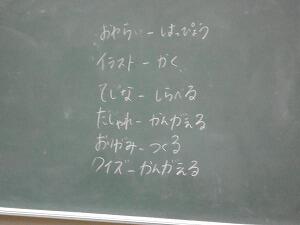 おわらい－はっぴょう
イラスト－かく
てじな－しらべる
だじゃれ－かんがえる
おりがみ－つくる
クイズ－かんがえる